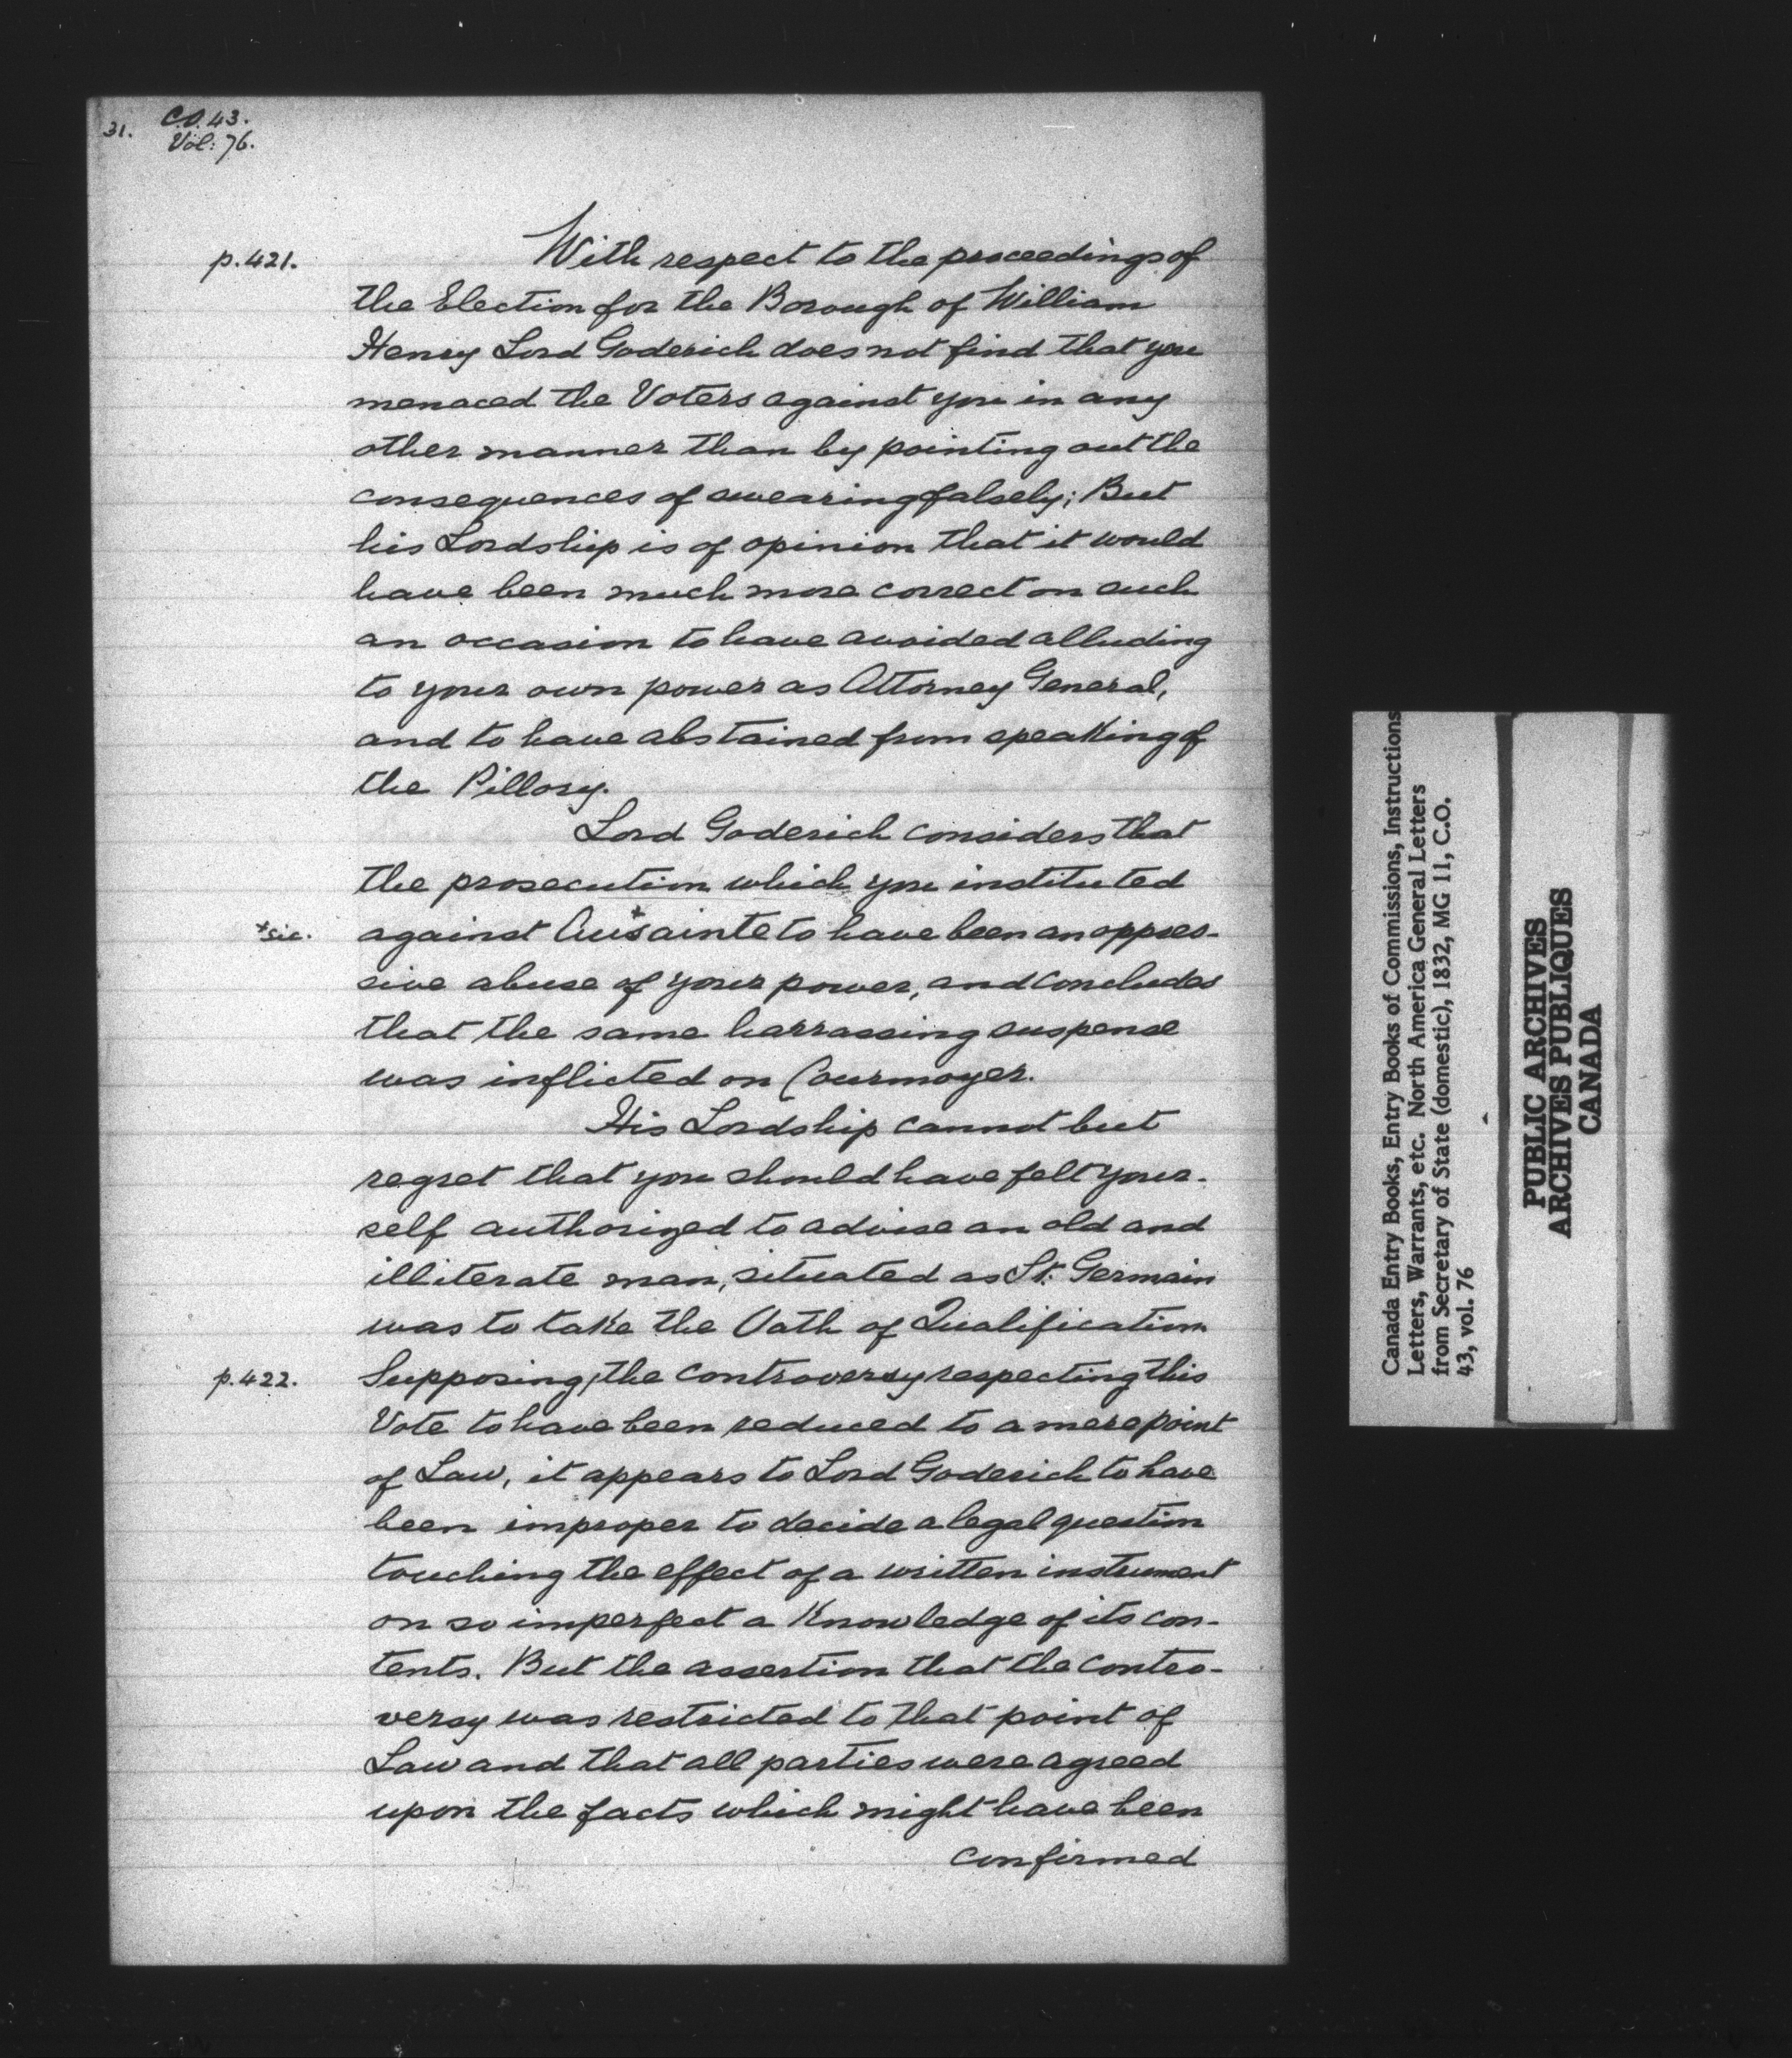 31. C.O. 43.
Vol: 76.
p. 421. With respect to the proceedings of
the Election for the Borough of William
Henry Lord Goderich does not find that you
menaced the Voters against you in any
other manner than by pointing out the
consequences of swearing falsely; But
his Lordship is of opinion that it would
have been much more correct on such
an occasion to have avoided alluding
to your own power as Attorney General,
and to have abstained from speaking of
the Pillory.
Lord Goderich considers that
the prosecution which you instituted
+sic. against Aussainte+ to have been an oppres-
sive abuse of your power, and concludes
that the same harrassing suspense
was inflicted on Cournoyer.
His Lordship cannot but
regret that you should have felt your-
self authorized to advise an old and
illiterate man, situated as St. Germain
was to take the Oath of Qualification
p. 422. Supposing, the controversy respecting this
Vote to have been reduced to a mere point
of Law, it appears to Lord Goderich to have
been improper to decide a legal question
touching the effect of a written instrument
on so imperfect a Knowledge of its con-
tents. But the assertion that the contro-
versy was restricted to that point of
Law and that all parties were agreed
upon the facts which might have been
confirmed
Canada Entry Books, Entry Books of Commissions, Instructions
Letters, Warrants, etc. North America General Letters
from Secretary of State (domestic), 1832, MG 11, C.O.
43, vol. 76
PUBLIC ARCHIVES
ARCHIVES PUBLIQUES
CANADA